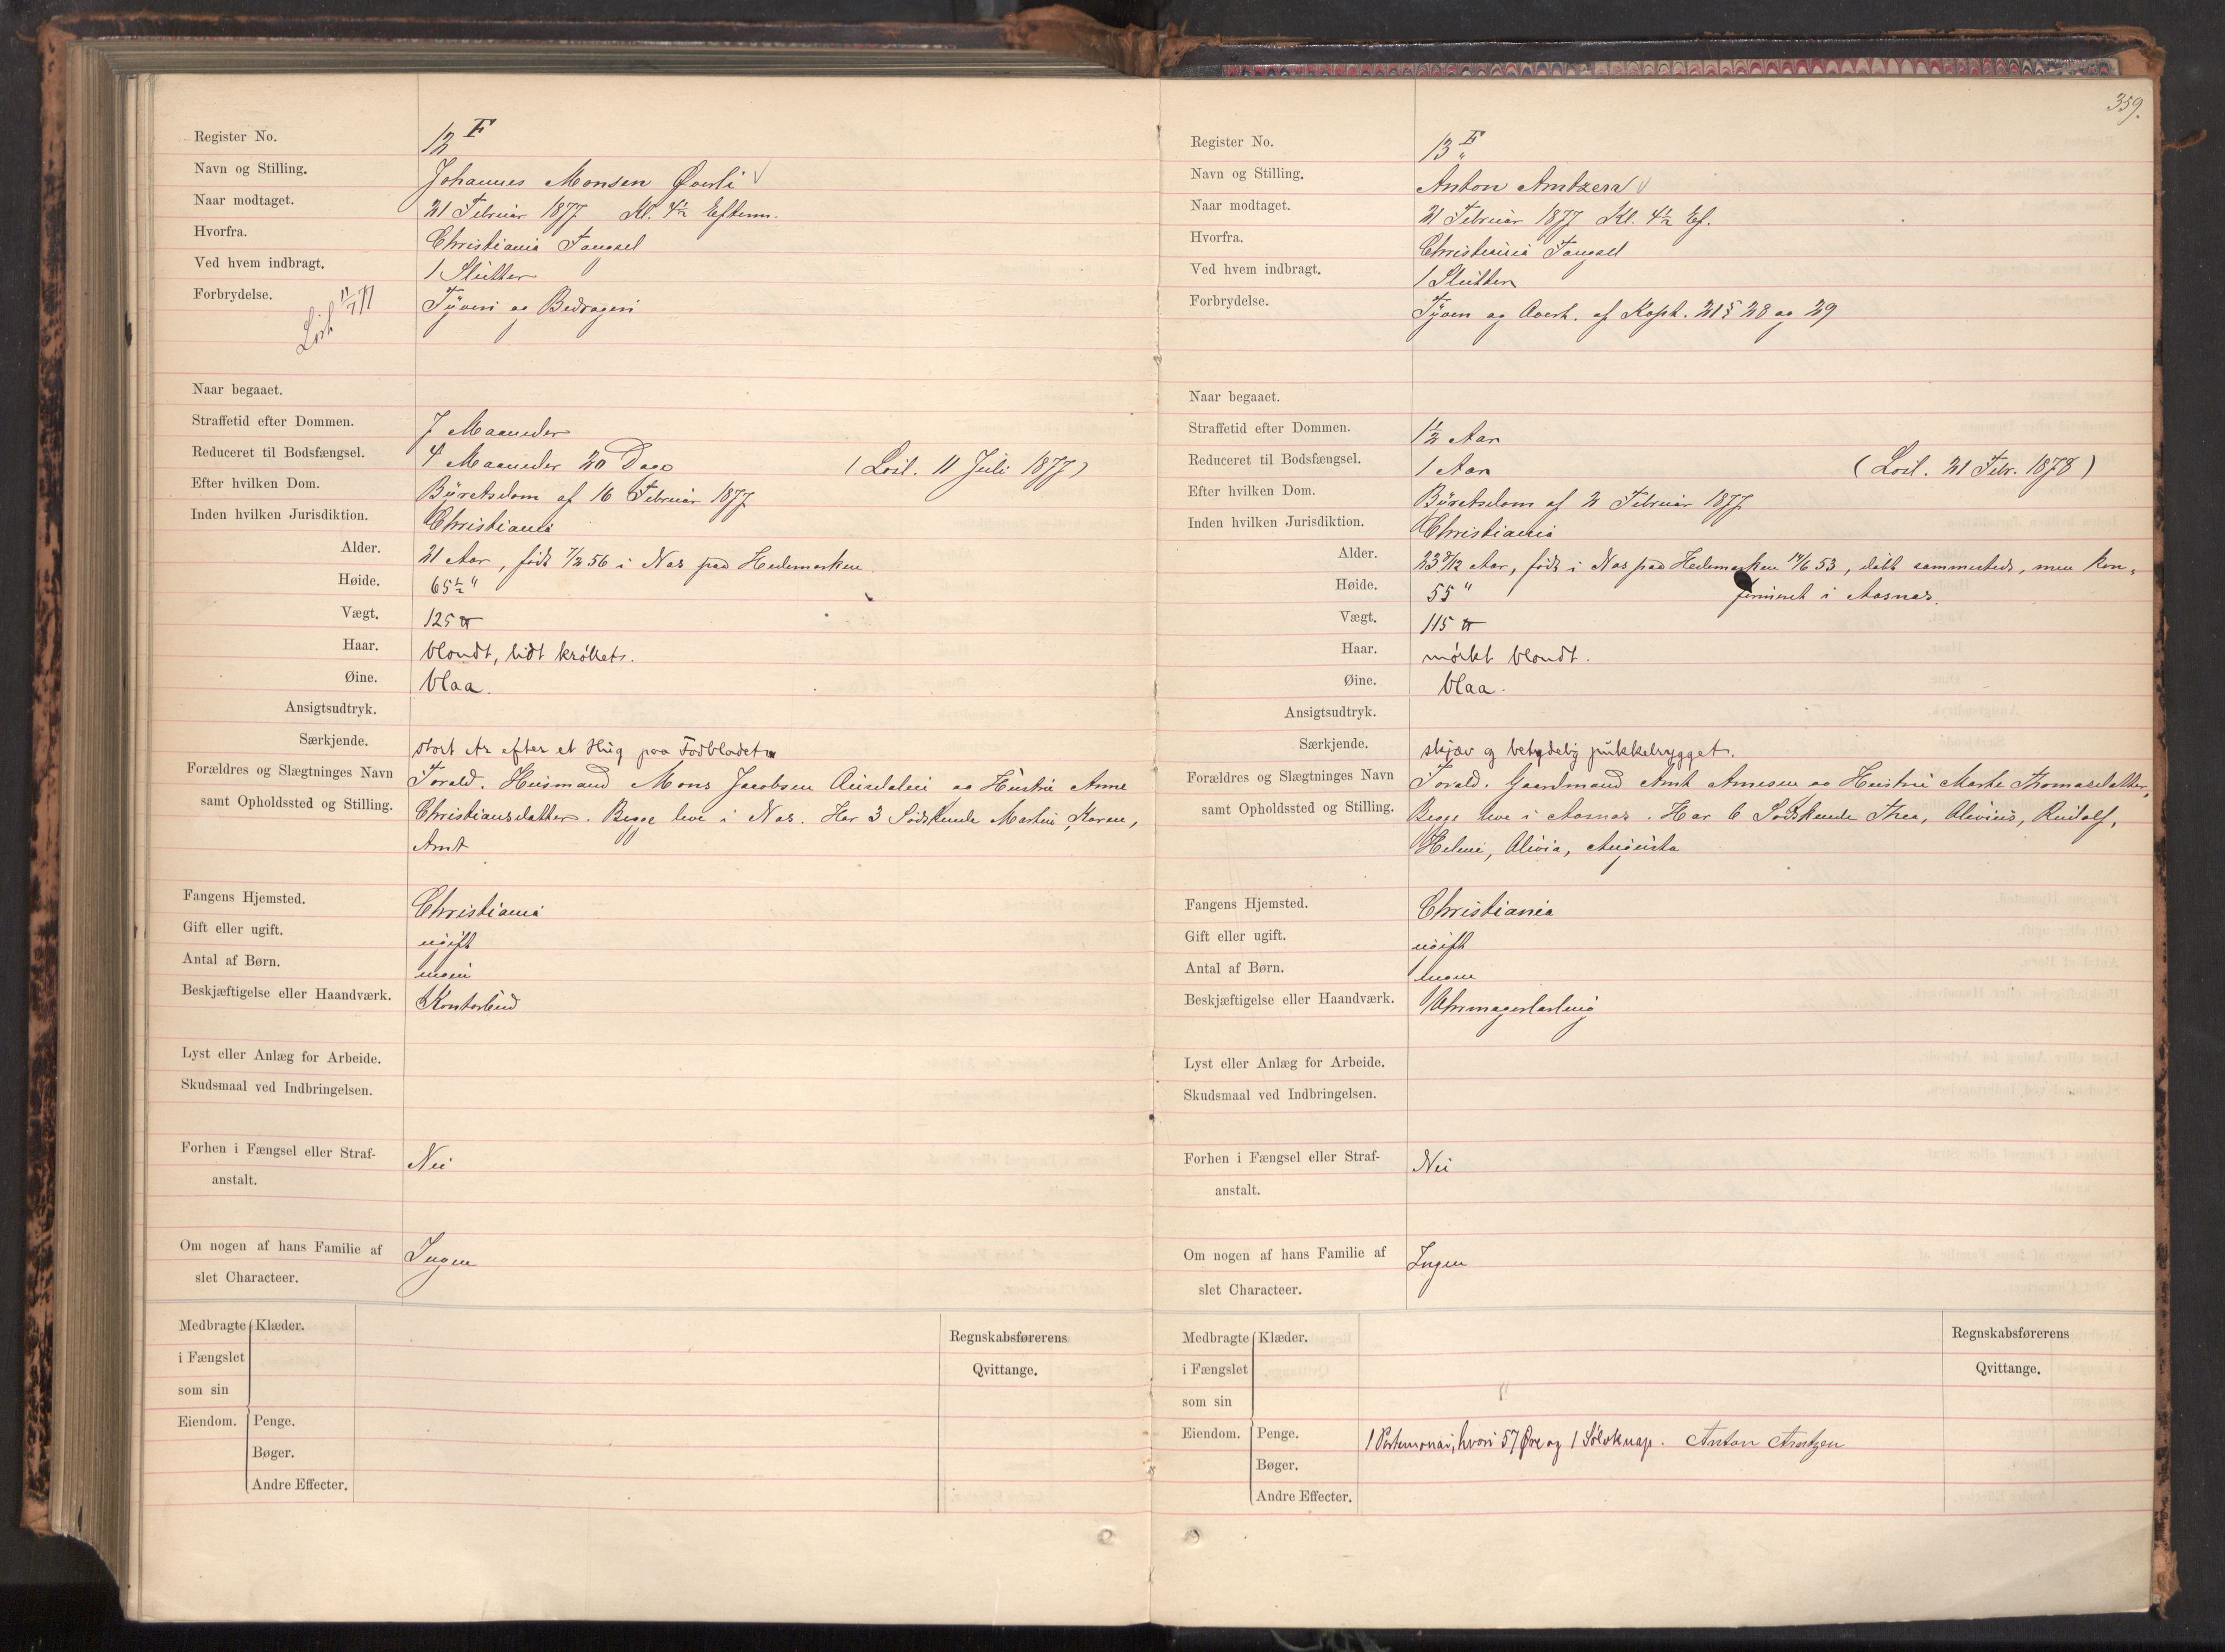 Register No. 12 F
Navn og Stilling. Johannes Monsen Øverli
Naar modtaget. 21 Februar 1877 Kl. 4½ Efterm.
Hvorfra. Christiania Fængsel
Ved hvem indbragt. 1 Slutter
Forbrydelse. Tyveri og Bedrageri
Løsl. 11/7 77
Naar begaaet.
Straffetid efter Dommen. 7 Maaneder
Reduceret til Bodsfængsel. 4 Maaneder 20 Dage (Løsl. 11 Juli 1877)
Efter hvilken Dom. Byretsdom af 16 Februar 1877
Inden hvilken Jurisdiktion. Christiania
Alder. 21 Aar, født 7/2 56 i Næs paa Hedemarken
Høide. 65½ "
Vægt. 125 ℔
Haar. blondt, lidt krøllet.
Øine. blaa.
Ansigtsudtryk.
Særkjende. stort Ar efter et Hug paa Fodbladet
Forældres og Slægtninges Navn Foræld. Husmand Mons Jacobsen og Hustru Anne
samt Opholdssted og Stilling. Christiansdatter. Begge leve i Næs. Har 3 Sødskende Martin, Karen,
Arnt
Fangens Hjemsted. Christiania
Gift eller ugift. ugift
Antal af Børn. ingen
Beskjæftigelse eller Haandværk. Kontorbud
Lyst eller Anlæg for Arbeide.
Skudsmaal ved Indbringelsen.
Forhen i Fængsel eller Straf- Nei
anstalt.
Om nogen af hans Familie af Ingen
slet Characteer.
Medbragte Klæder. Regnskabsførerens
i Fængslet Qvittange.
som sin
Eiendom. Penge.
Bøger.
Andre Effecter.
359.
Register No. 13 F
Navn og Stilling. Anton Arntzen
Naar modtaget. 21 Februar 1877 Kl. 4½ Ef.
Hvorfra. Christiania Fængsel
Ved hvem indbragt. 1 Slutter
Forbrydelse. Tyveri og Overt. af Kap. 21 § 28 og 29
Naar begaaet.
Straffetid efter Dommen. 1½ Aar
Reduceret til Bodsfængsel. 1 Aar (Løsl. 21 Febr. 1878)
Efter hvilken Dom. Byretsdom af 2 Februar 1877
Inden hvilken Jurisdiktion. Christiania
Alder. 23 8/12 Aar, født i Næs paa Hedemarken 14/6 53, døbt sammesteds, men kon-
Høide. 55 " firmeret i Aasnæs.
Vægt. 115 ℔
Haar. mørkt blondt.
Øine. blaa.
Ansigtsudtryk.
Særkjende. skjæv og betydelig pukkelrygget.
Forældres og Slægtninges Navn Foræld. Gaardmand Arnt Arnesen og Hustru Marte Thomasdatter,
samt Opholdssted og Stilling. Begge leve i Aasnæs. Har 6 Sødskende Thea, Olivius, Rudolf,
Helene, Olivia, Augusta
Fangens Hjemsted. Christiania
Gift eller ugift. ugift
Antal af Børn. Ingen
Beskjæftigelse eller Haandværk. Uhrmagerlærling
Lyst eller Anlæg for Arbeide.
Skudsmaal ved Indbringelsen.
Forhen i Fængsel eller Straf- Nei
anstalt.
Om nogen af hans Familie af Ingen
slet Characteer.
Medbragte Klæder. Regnskabsførerens
i Fængslet Qvittange.
som sin "
Eiendom. Penge. 1 Portemonai, hvori 57 Øre og 1 Sølvknap. Anton Arntzen
Bøger.
Andre Effecter.